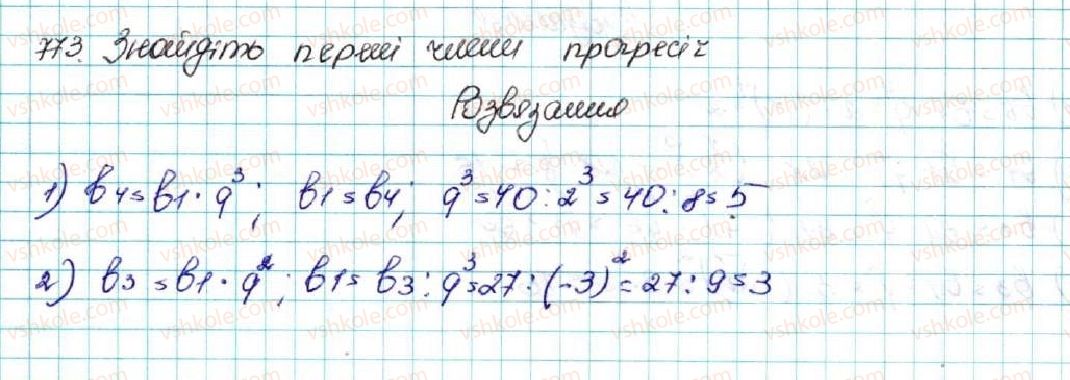 773. Знайдіть перші члени прогресії
Розвязання
1) b4 = b1 · q³; b1 = b4; q³ = 40 : 2³ = 40 : 8 = 5
2) b3 = b1 · q²; b1 = b3 : q³ = 27 : (-3)² = 27 : 9 = 3